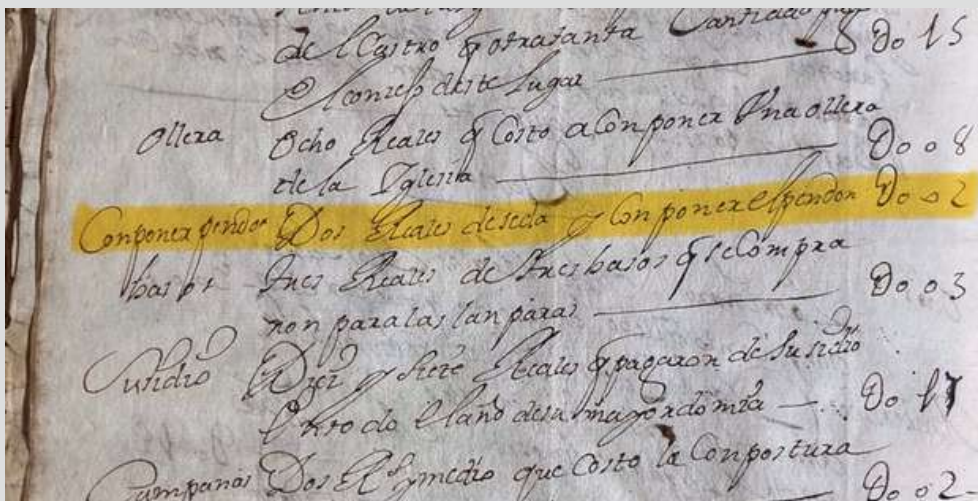 de l Castro q otra tanta Cantidad
El conzejo deste Lugar — Do 15
ollera Ocho Reales q Costo a Conponer Vna ollera
de la Yglesia — Do 0 8
Conponer pendon Dos Reales de seda y Conponer el pendon Do 0 2
basos tres Reales de tres basos q se Compra
non para las lanparas — Do 0 3
Susidio Diez y siete Reales q pagaron de Susidio
en todo el año de su mayordomia — Do 17
Campanas Dos Rs y medio que Costo la Conpostura
Do 0 2